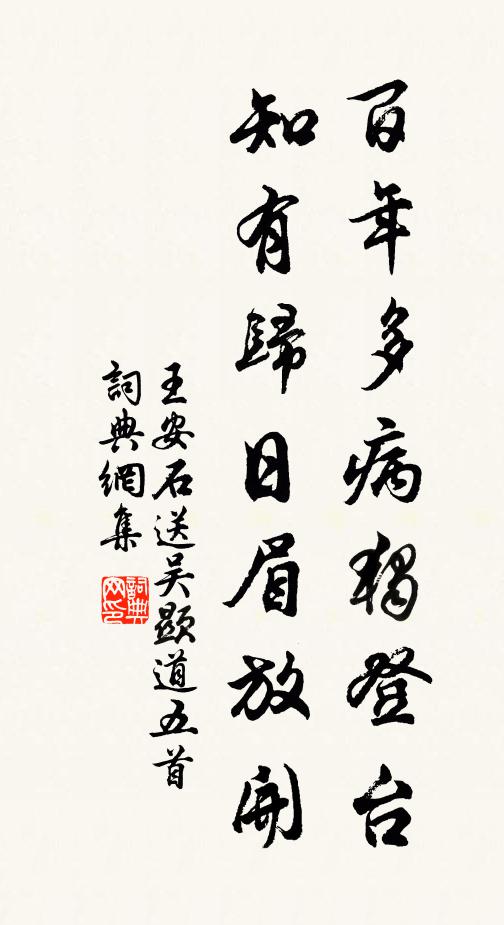 百年多病獨登台
知有歸日眉放開
王安石送吴顯道五首
詞典網集
詞典網印